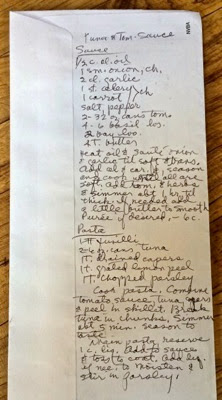 Tuna & Tom-Sauce
Sauce
1/2 c. ol. oil
1 sm. onion, ch.
2 cl. garlic
1 st. celery, ch
1 carrot
salt, pepper
2- 32 oz. cans tom.
4-6 basil lvs.
2 bay lvs.
4T. butter
Heat oil & sauté onion
& garlic til soft & trans.
Add cel & car. & season
and cook until all are
soft. Add tom. & herbs
& simmer abt 1 hr. til
thick. if needed add
a little butter to smooth
Purée if desired, - 6c.
Pasta
1 # fusilli
oz. cans tuna
1T. drained capers
1t. grated lemon peel
1T. chopped parsley
Cook pasta. Combine
tomato sauce, tuna, capers
& peel in skillet. Break
tuna in chunks, Simmer
abt 5 min. season to
taste
Drain pasta, reserve
1 c. liq. Add to sauce
& toss to coat. Add liq.
if nec. to moisten &
stir in parsley.